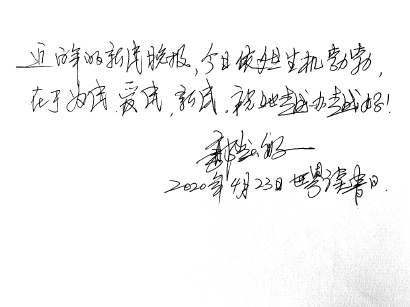 近百年的新民晚报,今日依然生机勃勃,
在于为民、爱民、新民。祝她越办越好!
2020年4月23日世界读书日.